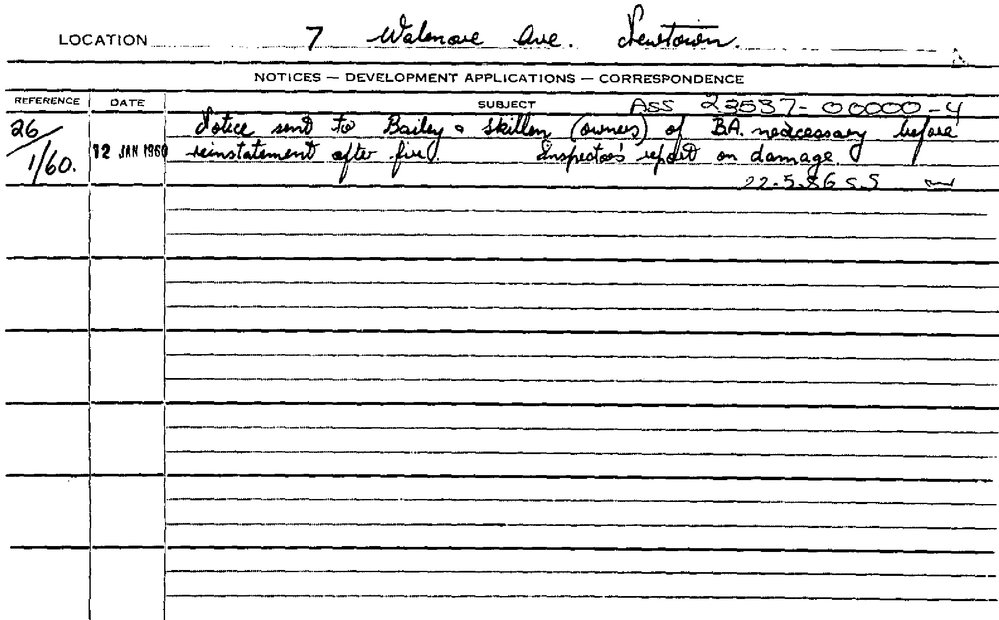 LOCATION 7 Walenore Ave. Newtown.
NOTICES — DEVELOPMENT APPLICATIONS — CORRESPONDENCE
REFERENCE DATE SUBJECT ASS 22537-00000-4
26/1/60. 12 JAN 1960 Notice sent to Bailey & Skillen (owners) of B.A. nedcessary before
reinstatement after fire. Inspector's report on damage.
22.5.86 S.S